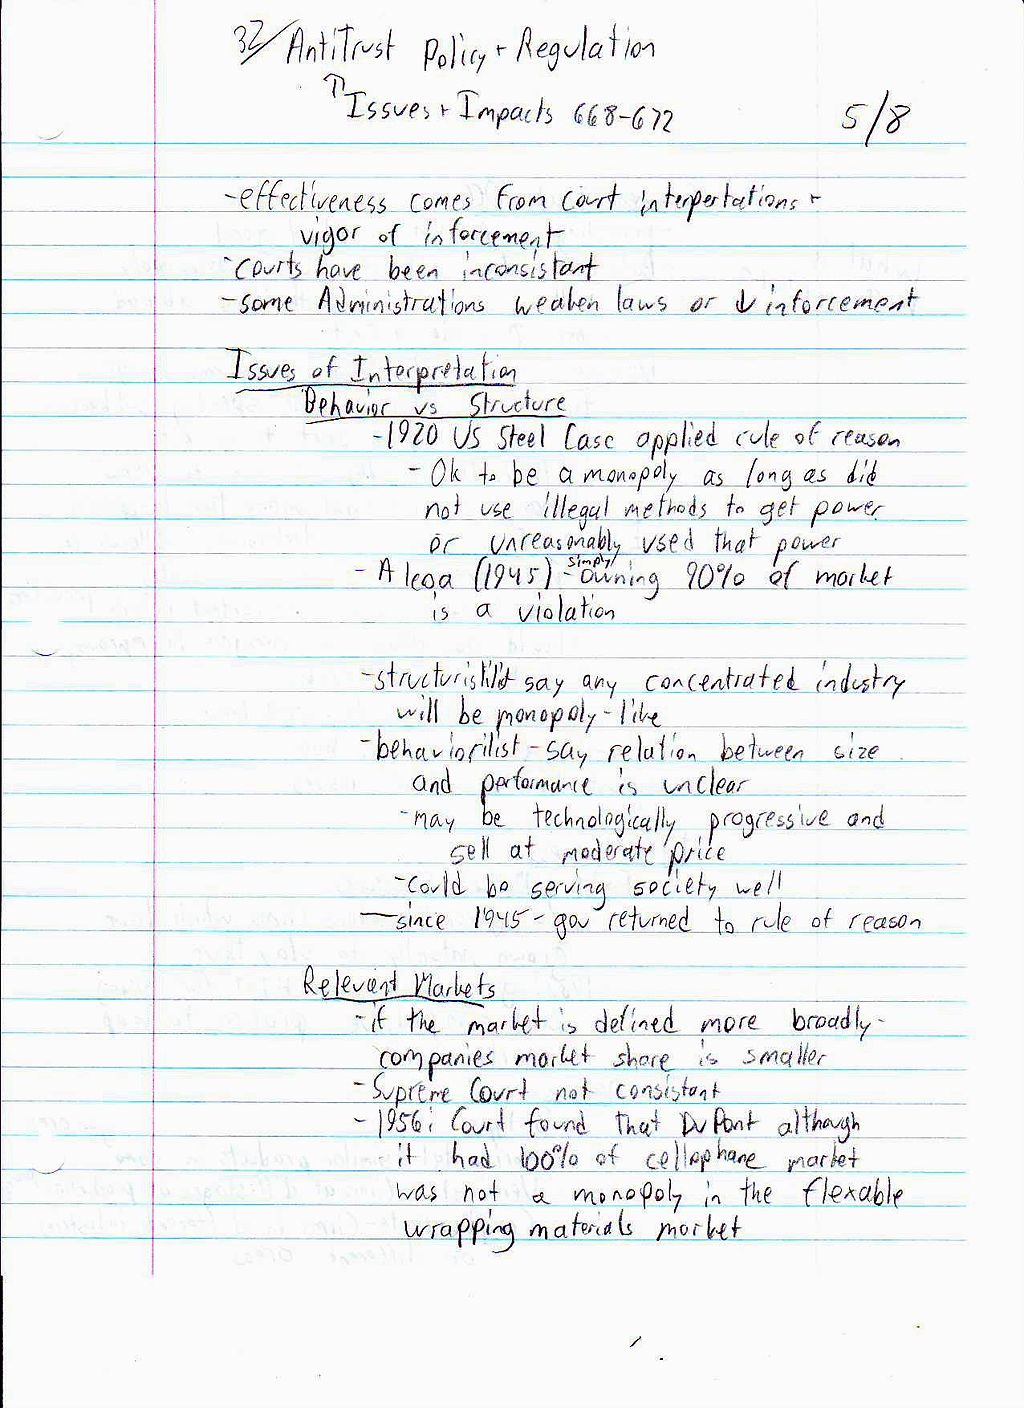 32/ AntiTrust Policy + Regulation
↑ Issues + Impacts 668-672
5/8
-effectiveness comes from court interpertations +
vigor of inforcement
-courts have been inconsistant
-some Administrations weaken laws or ↓ inforcement
Issues of Interpretation
Behavior vs Structure
-1920 US Steel Case applied rule of reason
- Ok to be a monopoly as long as did
not use illegal methods to get power
or unreasonably used that power
- Alcoa (1945) - simply owning 90% of market
is a violation
-structurist say any concentrated industry
will be monopoly-like
-behaviorilist - say relation between size
and performance is unclear
-may be technologically progressive and
sell at moderate price
-could be serving society well
-since 1945 - gov returned to rule of reason
Relevent Markets
-if the market is defined more broadly-
companies market share is smaller
-Supreme Court not consistant
-1956: Court found that DuPont although
it had 100% of cellophane market
was not a monopoly in the flexable
wrapping materials market